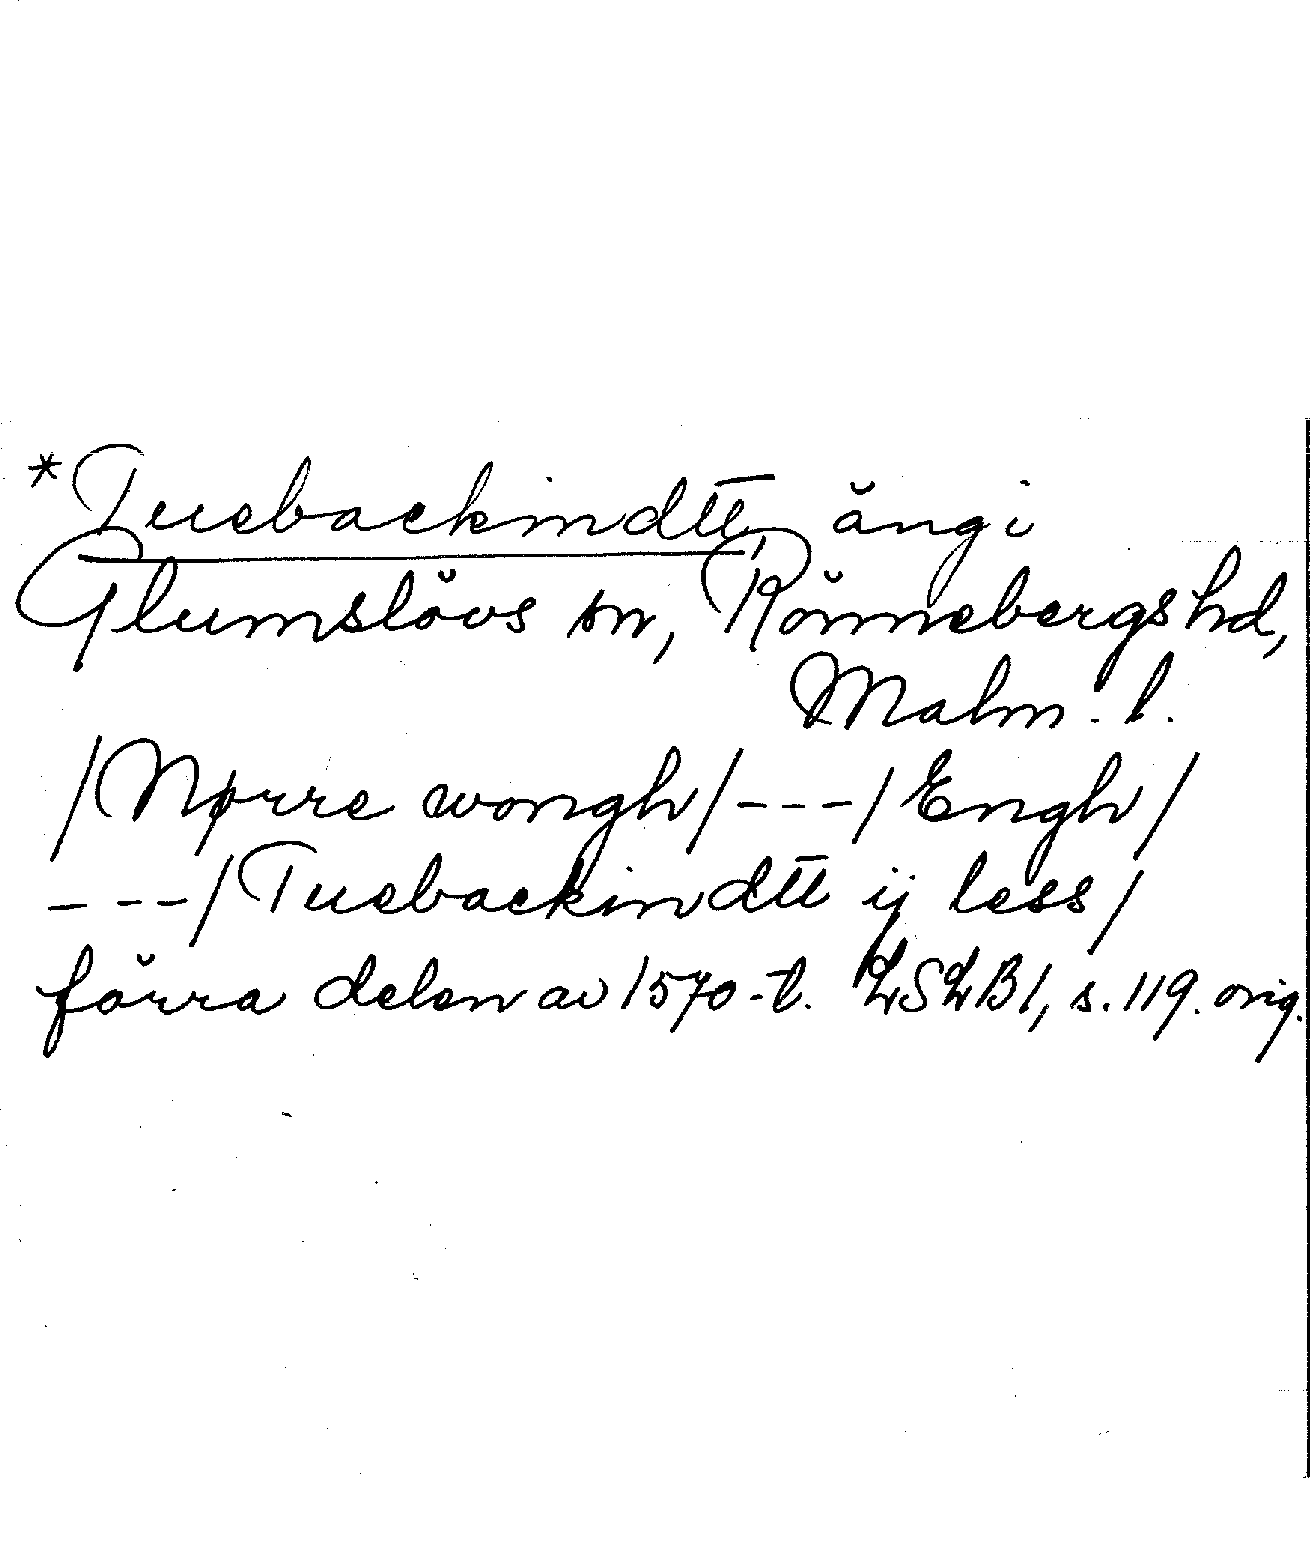 *Tuebackindtt̅ äng i
Glumslövs sn, Rönnebergs hd,
Malm. l.
/Nørre wongh/---/Engh/
---/Tuebackindtt̅ ij less/
förra delen av 1570-t. LSLB1, s. 119. orig.